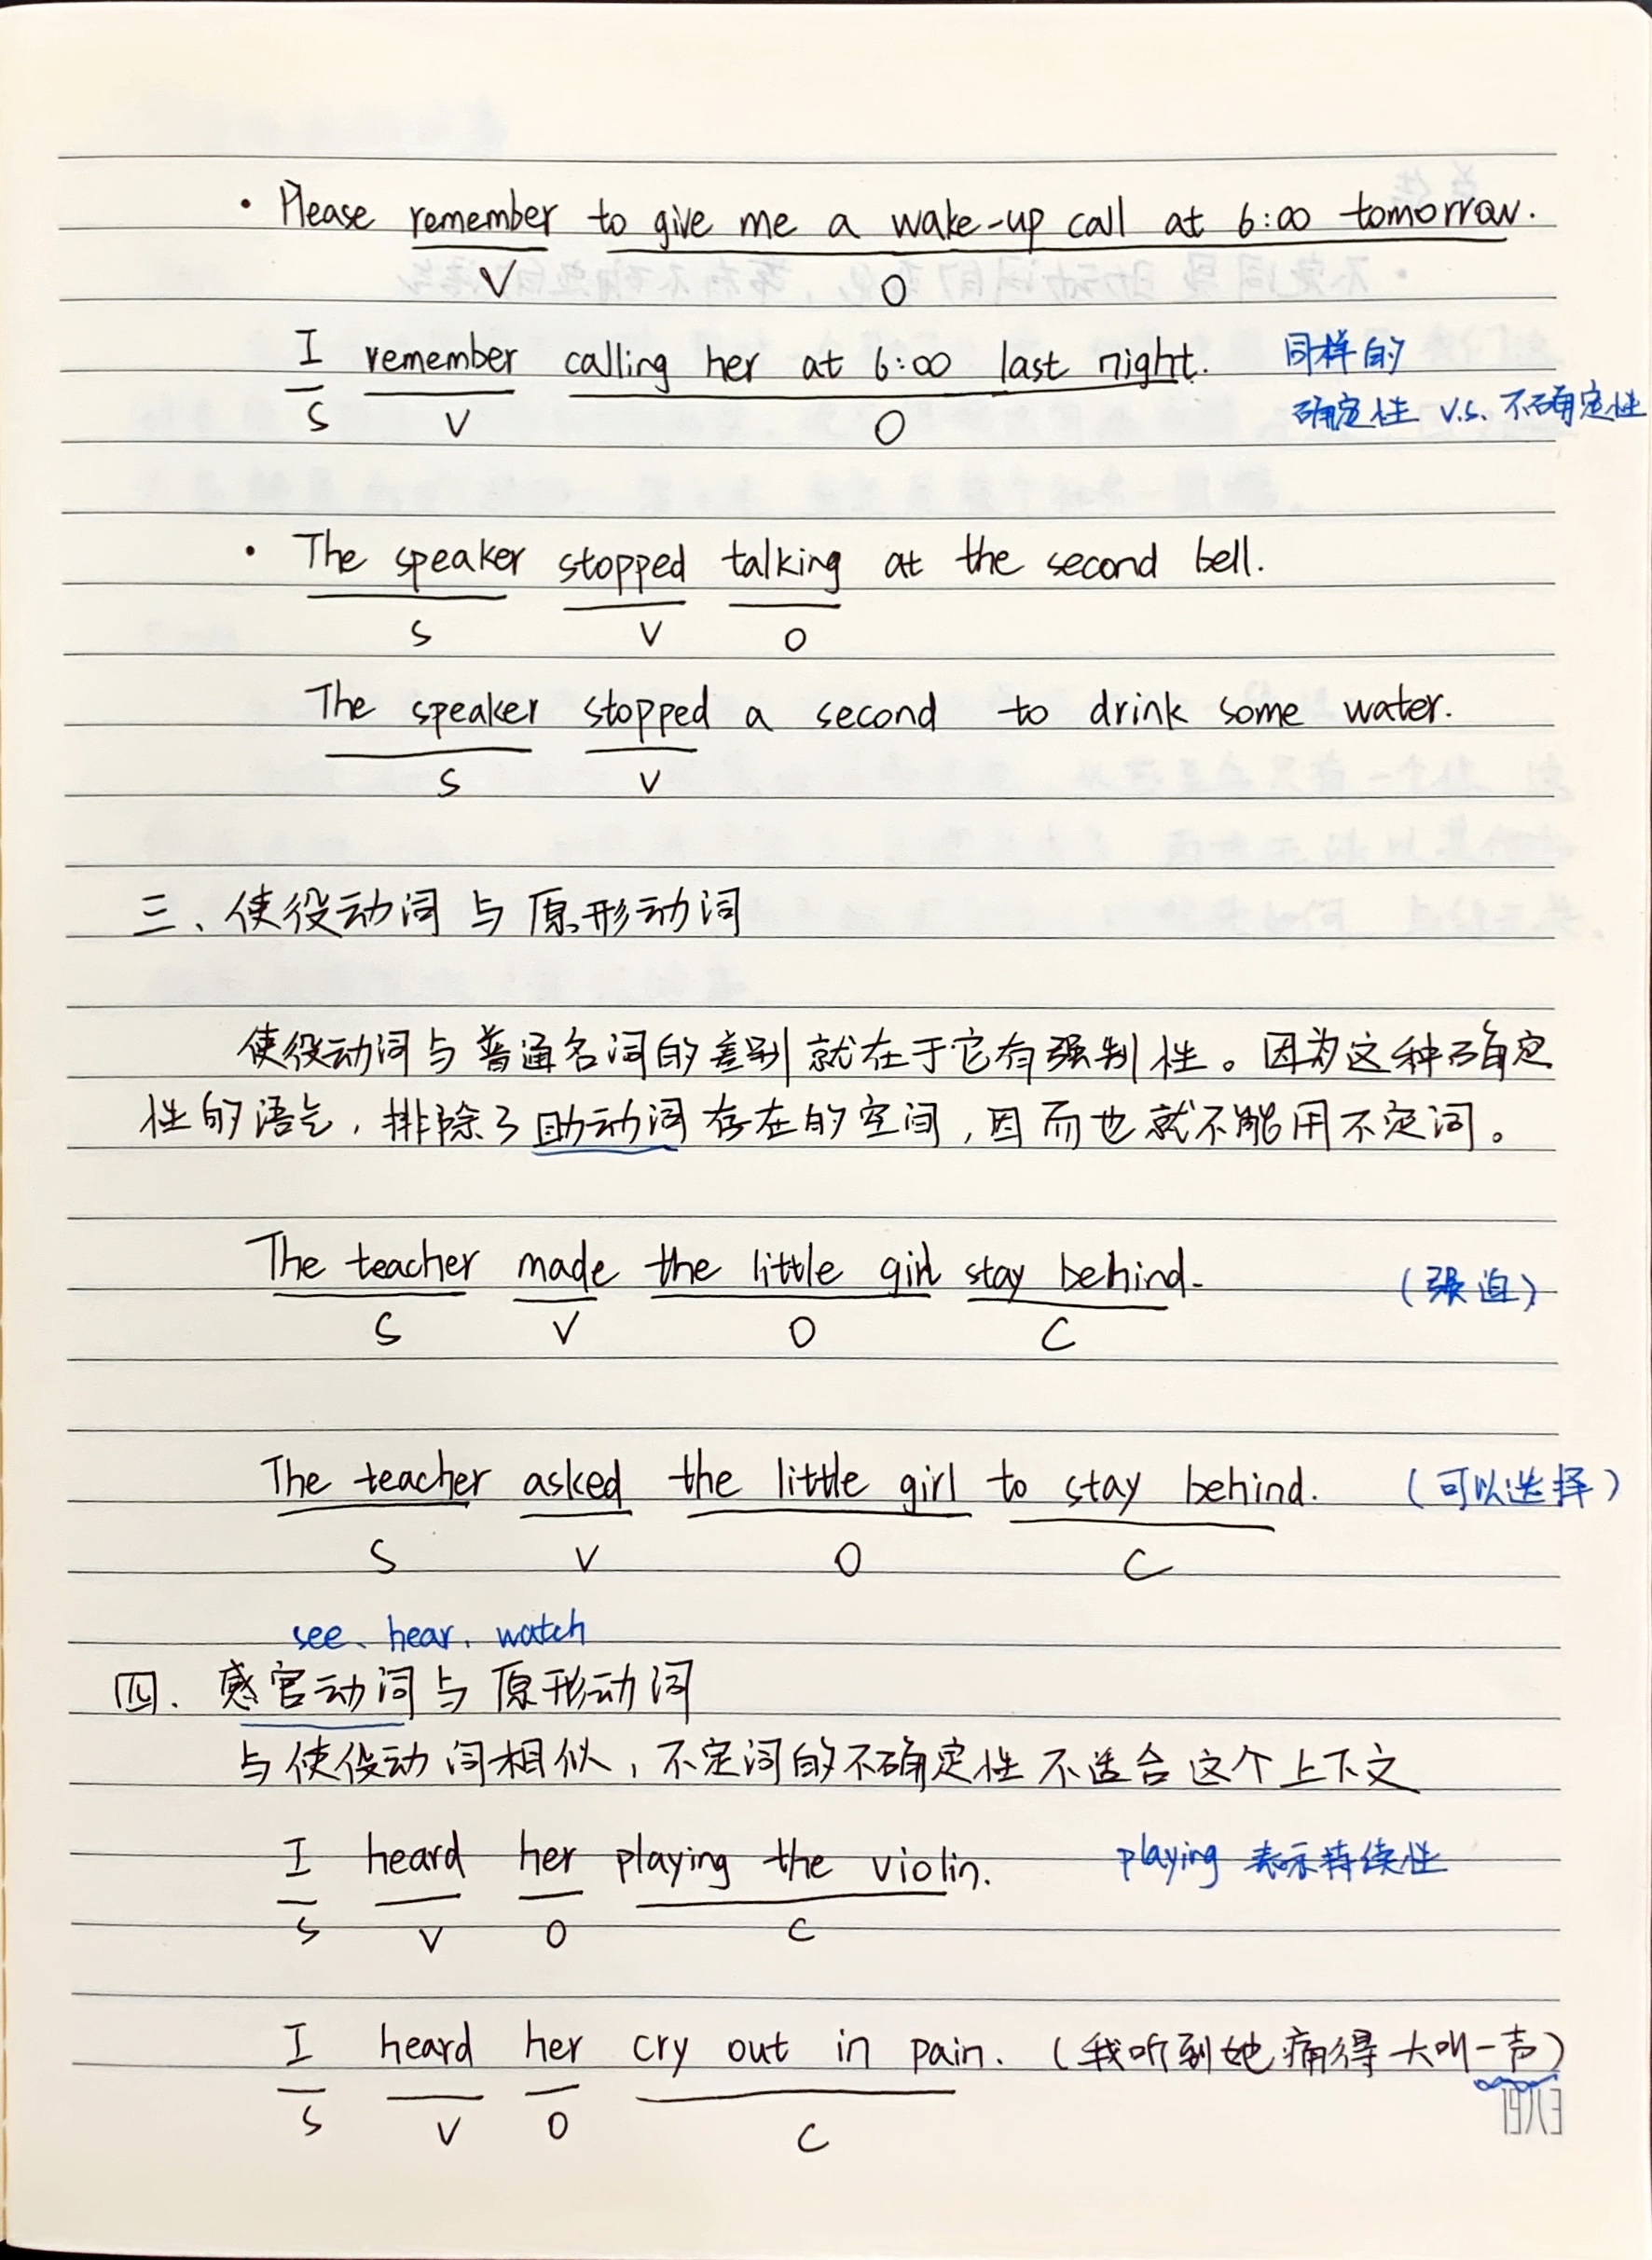 · Please remember to give me a wake-up call at 6:00 tomorrow.
V O
I remember calling her at 6:00 last night. 同样的
确定性 v.s. 不确定性
S V O
· The speaker stopped talking at the second bell.
S V O
The speaker stopped a second to drink some water.
S V
三、使役动词与原形动词
使役动词与普通名词的差别就在于它有强制性。因为这种确定
性的语气，排除了助动词存在的空间，因而也就不能用不定词。
The teacher made the little girl stay behind. （强迫）
S V O C
The teacher asked the little girl to stay behind. （可以选择）
S V O C
see、hear、watch
四、感官动词与原形动词
与使役动词相似，不定词的不确定性不适合这个上下文
I heard her playing the violin. playing 表示持续性
S V O C
I heard her cry out in pain. （我听到她痛得大叫一声）
S V O C